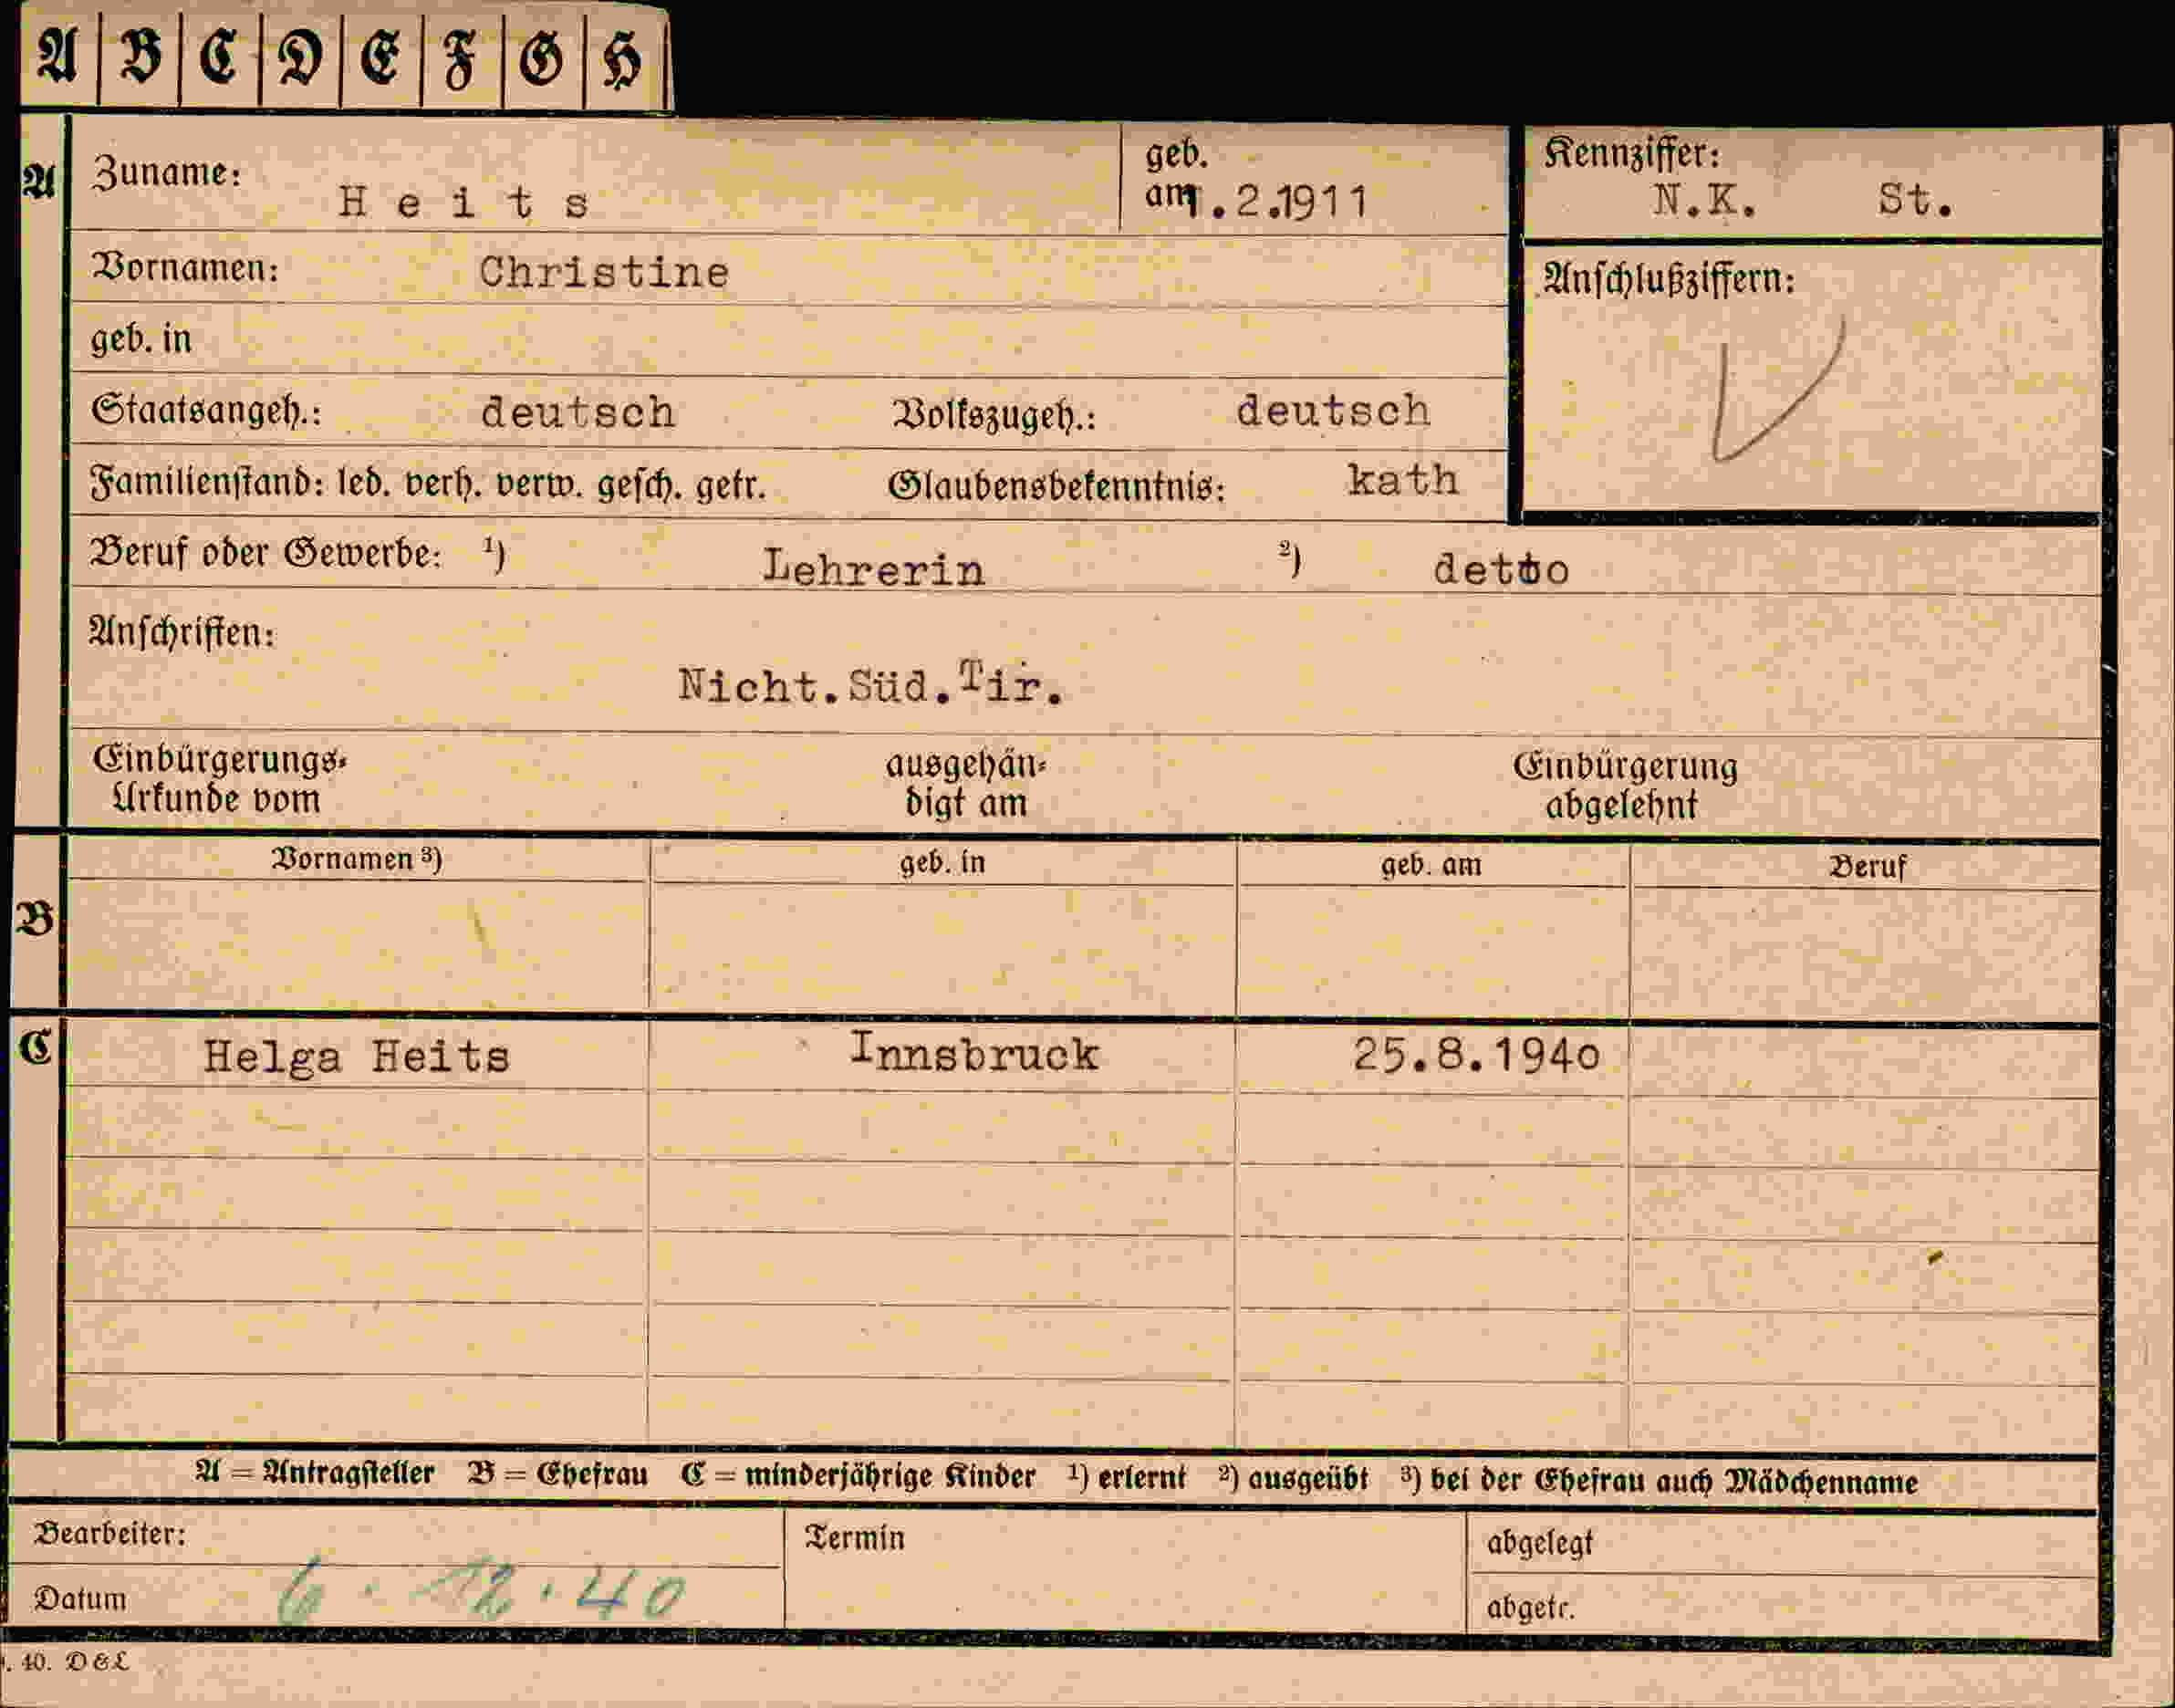 A B C D E F G H
A Zuname: Heits geb. am 1.2.1911 Kennziffer: N.K. St.
Vornamen: Christine Anschlußziffern:
geb. in
Staatsangeh.: deutsch Volkszugeh.: deutsch
Familienstand: led. verh. verw. gesch. getr. Glaubensbekenntnis: kath
Beruf oder Gewerbe: 1) Lehrerin 2) detto
Anschriften:
Nicht.Süd.Tir.
Einbürgerungs- ausgehän- Einbürgerung
Urkunde vom digt am abgelehnt
Vornamen 3) geb. in geb. am Beruf
B
C Helga Heits Innsbruck 25.8.1940
A = Antragsteller B = Ehefrau C = minderjährige Kinder 1) erlernt 2) ausgeübt 3) bei der Ehefrau auch Mädchenname
Bearbeiter: Termin abgelegt
Datum 6. 12. 40 abgetr.
. 40. D&L